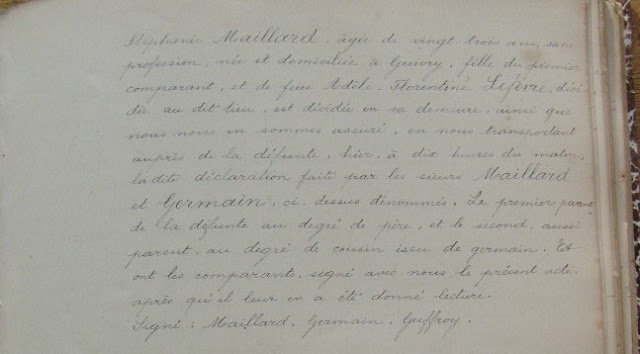 Stéphanie Maillard, âgée de vingt trois ans, sans
profession, née et domiciliée à Guivry, fille du premier
comparant, et de feue Adèle-Florentine Lefèvre, décé-
dée au dit lieu, est décédée en sa demeure, ainsi que
nous nous en sommes assuré, en nous transportant
auprès de la défunte, hier, à dix heures du matin,
la dite déclaration faite par les sieurs Maillard
et Germain, ci-dessus dénommés. Le premier parent
de la défunte au degré de père, et le second, aussi
parent, au degré de cousin issu de germain. Et
ont les comparants, signé avec nous le présent acte,
après qu'il leur en a été donné lecture.
Signé : Maillard, Germain, Guffroy.